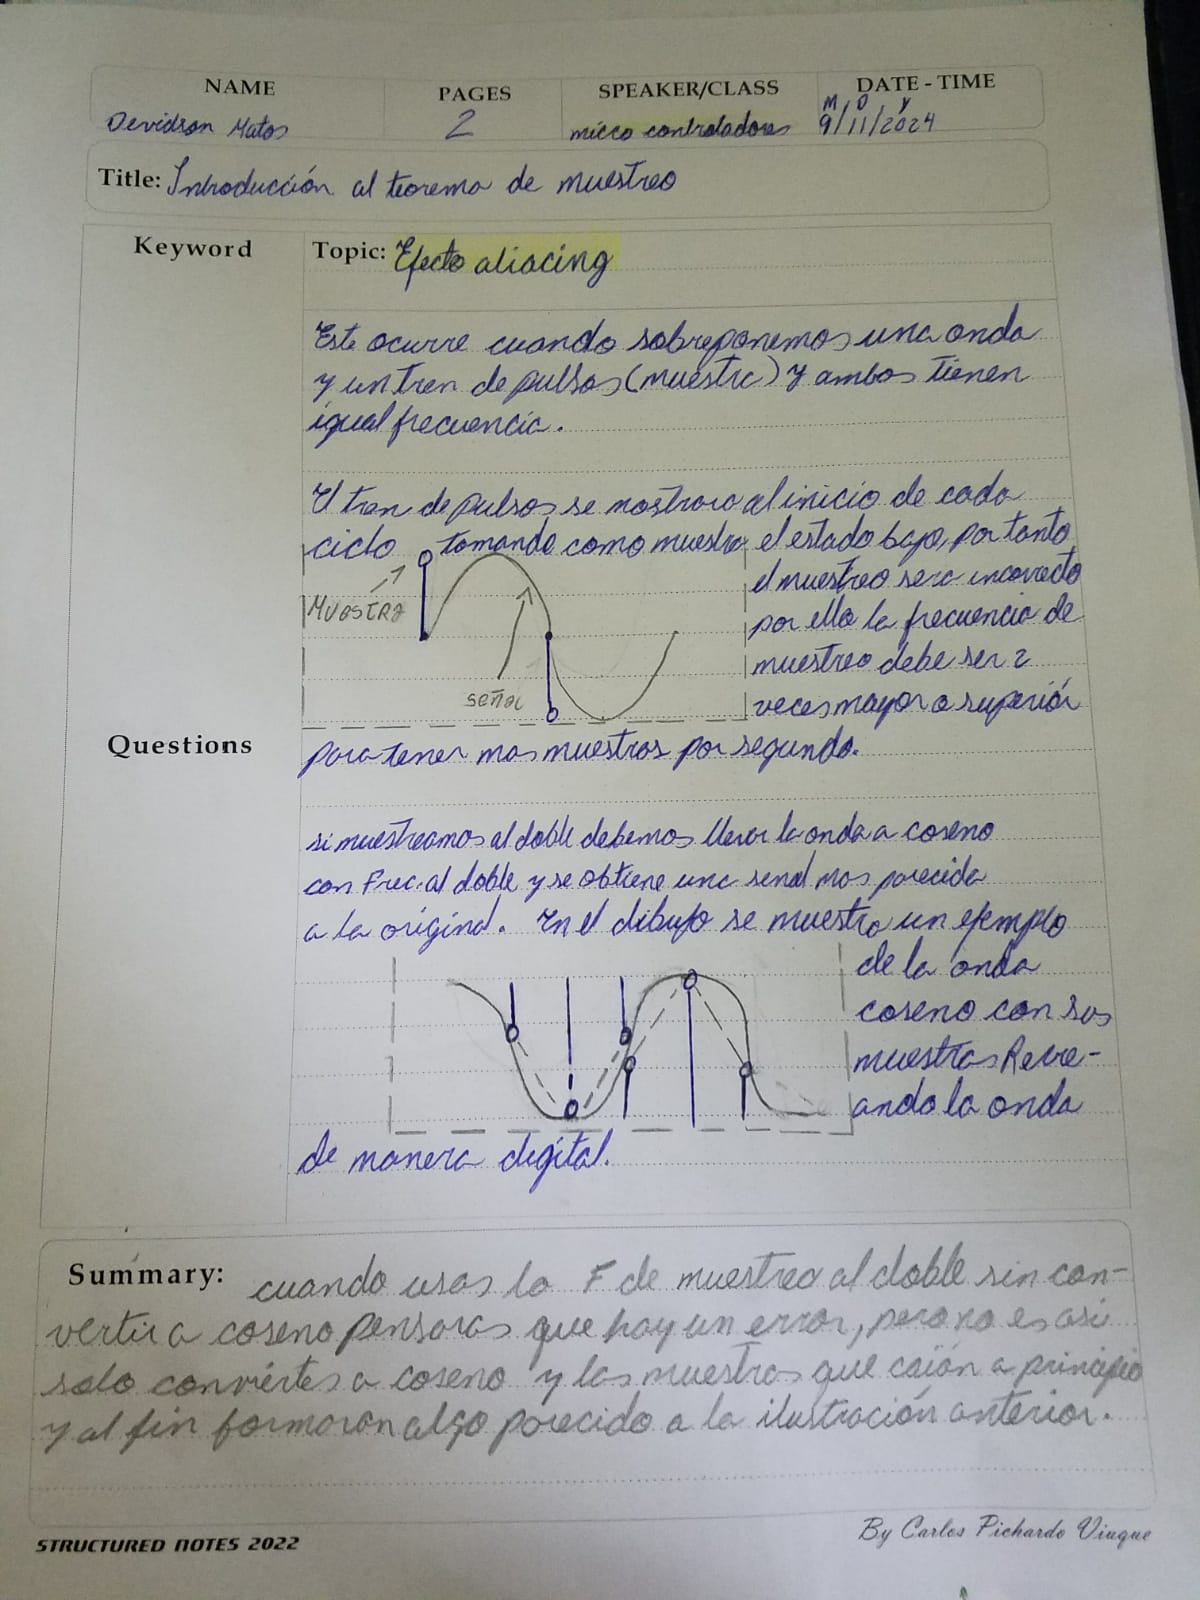 NAME
PAGES
SPEAKER/CLASS
DATE - TIME
Devidson Matos
2
micro controladores
M D Y
9/11/2024
Title: Introducción al teorema de muestreo
Keyword
Topic: Efecto aliacing
Este ocurre cuando sobreponemos una onda
y un tren de pulsos (muestra) y ambos tienen
igual frecuencia.
El tren de pulsos se mostrara al inicio de cada
ciclo tomando como muestra el estado bajo, por tanto
el muestreo sera incorrecto
MUESTRA
por ello la frecuencia de
muestreo debe ser 2
señal
veces mayor o superiór
Questions
para tener mas muestras por segundo.
si muestreamos al doble debemos llevar la onda a coseno
con Frec. al doble y se obtiene una senal mas parecida
a la original. En el dibujo se muestra un ejemplo
de la onda
coseno con sus
muestras Recre-
ando la onda
de manera digital.
Summary: cuando usas la F de muestreo al doble sin con-
vertir a coseno pensaras que hay un error, pero no es asi
solo conviértes a coseno y las muestras que caián a principio
y al fin formaran algo parecido a la ilustración anterior.
STRUCTURED NOTES 2022
By Carlos Pichardo Viuque